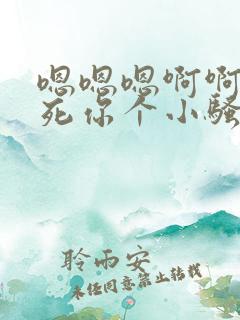 嗯嗯嗯啊啊
死你个小骚
聆雨安
未经同意禁止转载